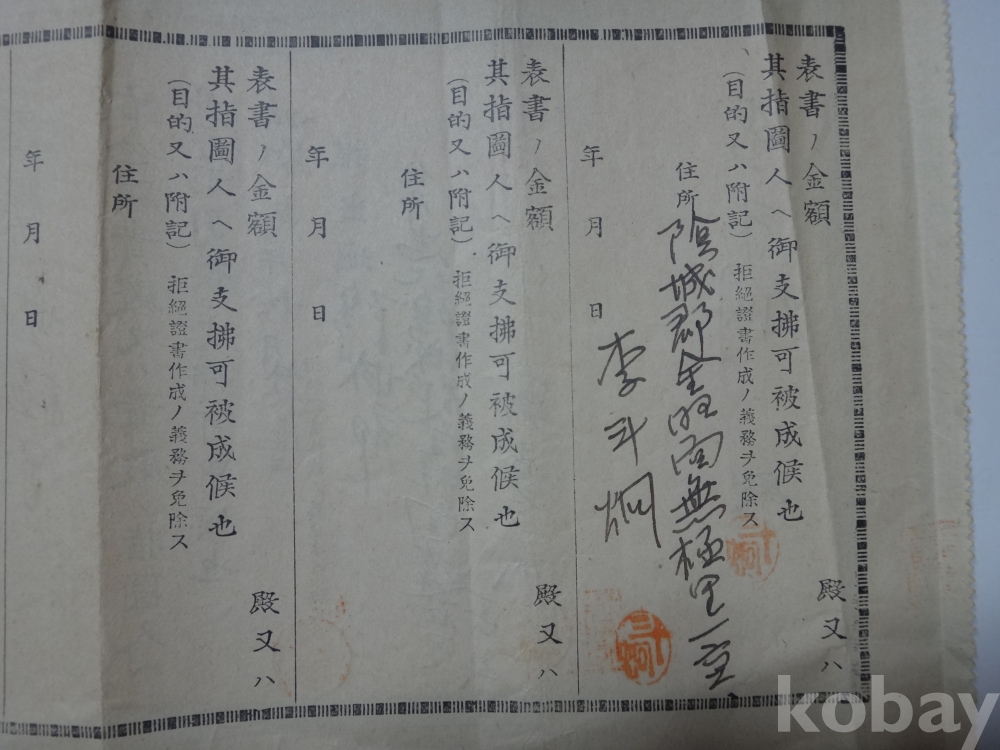 表書ノ金額
殿又ハ
其指圖人ヘ御支拂可被成候也
(目的又ハ附記)拒絕證書作成ノ義務ヲ免除ス
住所
陰城郡金旺面無極里一
年 月 日
李斗炯
表書ノ金額
殿又ハ
其指圖人ヘ御支拂可被成候也
(目的又ハ附記)拒絕證書作成ノ義務ヲ免除ス
住所
年 月 日
表書ノ金額
殿又ハ
其指圖人ヘ御支拂可被成候也
(目的又ハ附記)拒絕證書作成ノ義務ヲ免除ス
住所
年 月 日
kobay